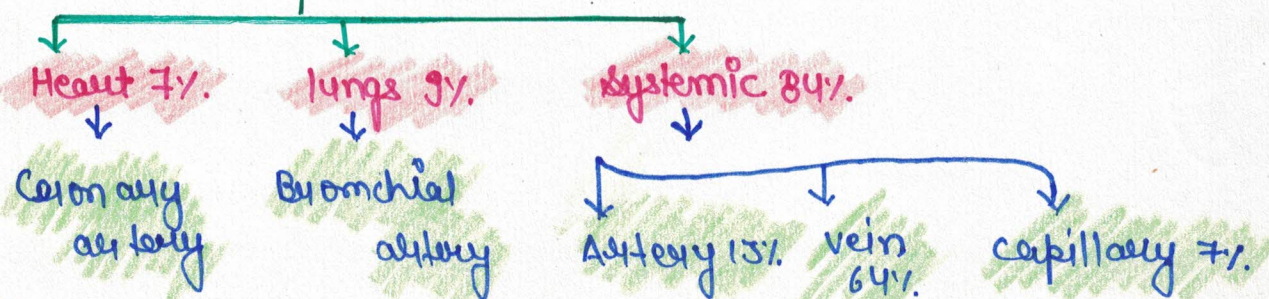 Heart 7%.
lungs 9%.
systemic 84%.
Coronary
artery
Bronchial
artery
Artery 13%.
vein
64%.
capillary 7%.